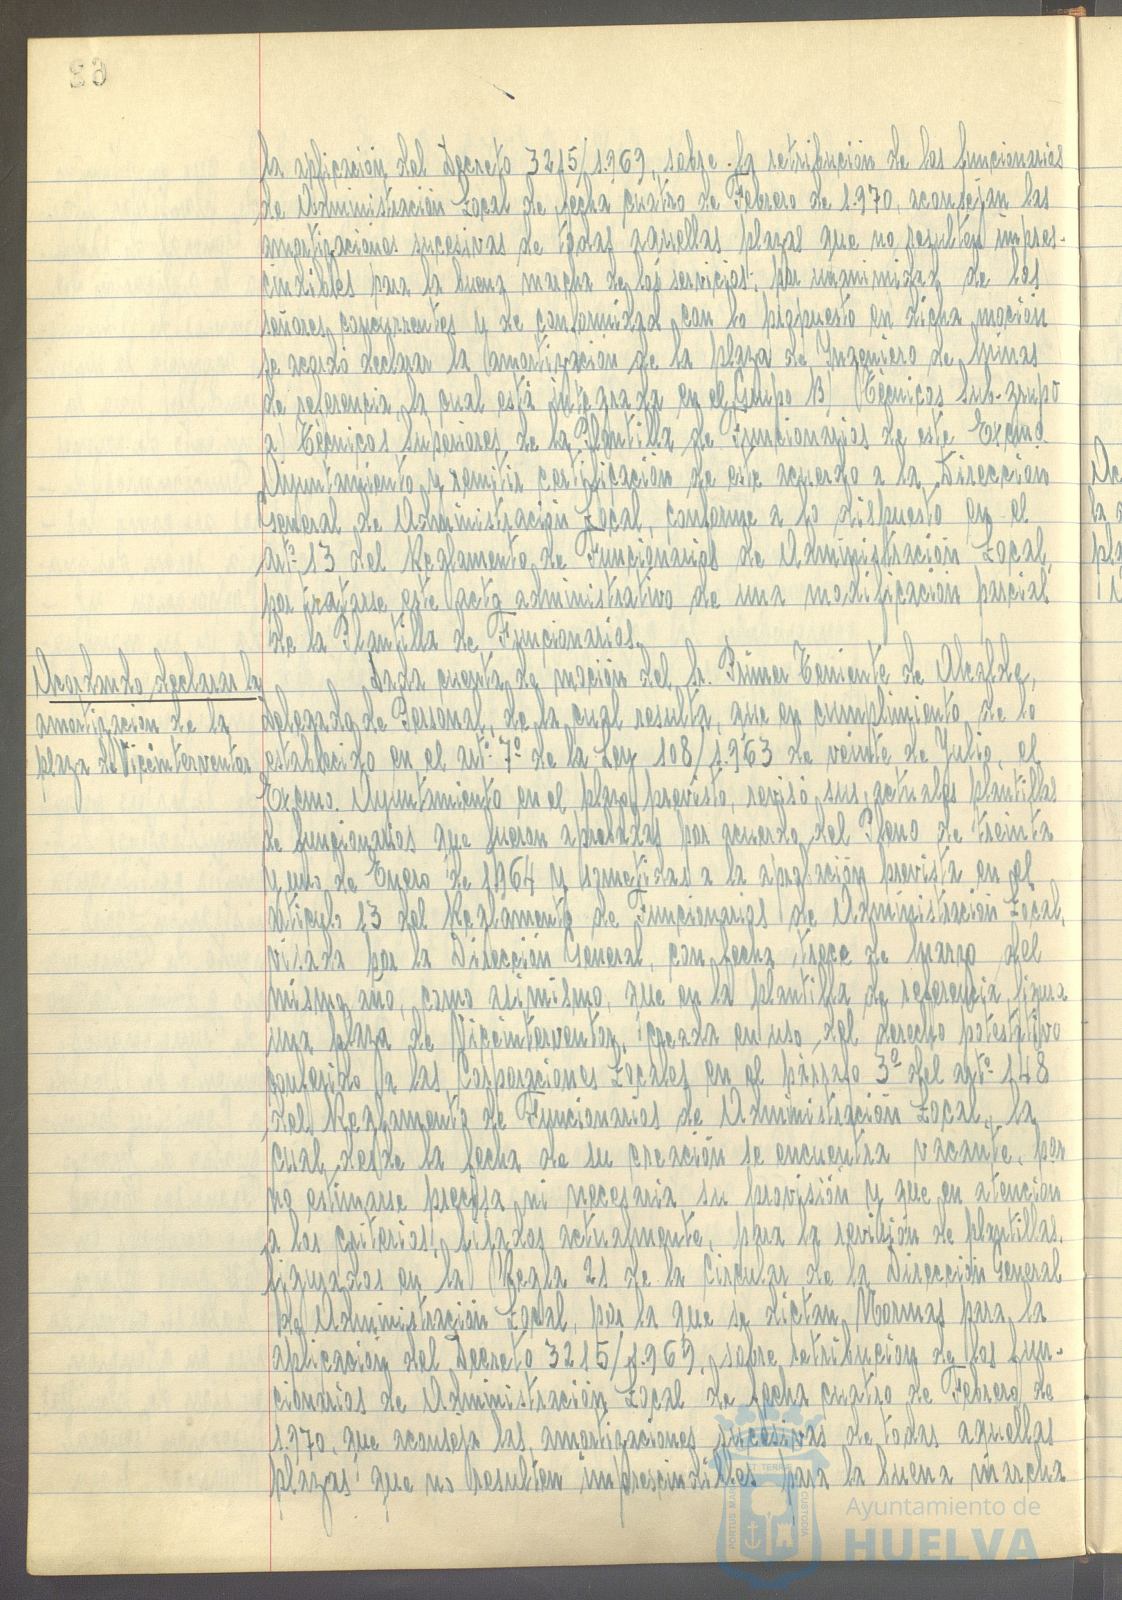 la aplicación del Decreto 3215/1.969, sobre la retribución de los funcionarios
de Administración Local de fecha cuatro de Febrero de 1.970, aconsejan las
amortizaciones sucesivas de todas aquellas plazas que no resulten impres-
cindibles para la buena marcha de los servicios; por unanimidad de los
señores concurrentes y de conformidad con lo propuesto en dicha moción
se acordó declarar la amortización de la plaza de Ingeniero de Minas
de referencia la cual está integrada en el Grupo B) Técnicos Sub-grupo
a) Técnicos Superiores de la Plantilla de Funcionarios de este Excmo.
Ayuntamiento y remitir certificación de este acuerdo a la Dirección
General de Administración Local, conforme a lo dispuesto en el
artº 13 del Reglamento de Funcionarios de Administración Local,
por tratarse este acto administrativo de una modificación parcial
de la Plantilla de Funcionarios.
Acordando declarar la
amortización de la
plaza de Viceinterventor
Dada cuenta de moción del Sr. Primer Teniente de Alcalde,
delegado de Personal, de la cual resulta, que en cumplimiento de lo
establecido en el artº 7º de la Ley 108/1.963 de veinte de Julio, el
Excmo. Ayuntamiento en el plazo previsto, revisó sus actuales plantillas
de funcionarios que fueron aprobadas por acuerdo del Pleno de treinta
y uno de Enero de 1964 y sometidas a la aprobación prevista en el
artículo 13 del Reglamento de Funcionarios de Administración Local,
visada por la Dirección General, con fecha trece de Marzo del
mismo año, como asimismo, que en la plantilla de referencia figura
una plaza de Viceinterventor, creada en uso del derecho potestativo
conferido a las Corporaciones Locales en el párrafo 3º del artº 148
del Reglamento de Funcionarios de Administración Local, la
cual desde la fecha de su creación se encuentra vacante, por
no estimarse precisa ni necesaria su provisión y que en atención
a los criterios fijados actualmente, para la revisión de plantillas,
figurados en la Regla 21 de la Circular de la Dirección General
de Administración Local, por la que se dictan Normas para la
aplicación del Decreto 3215/1.969, sobre retribución de los fun-
cionarios de Administración Local de fecha cuatro de Febrero de
1.970, que aconseja las amortizaciones sucesivas de todas aquellas
plazas que no resulten imprescindibles para la buena marcha
Ayuntamiento de
HUELVA